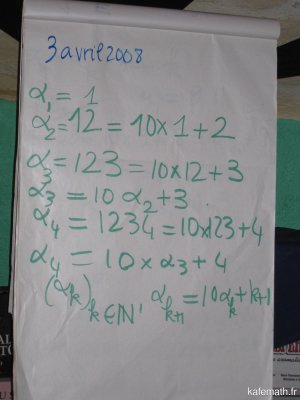 3 avril 2008
α₁ = 1
α₂ = 12 = 10×1+2
α₃ = 123 = 10×12+3
α₃ = 10 α₂ + 3 .
α₄ = 1234 = 10×123+4
α₄ = 10 × α₃ + 4
(αₖ)ₖ∈ℕ* αₖ₊₁ = 10αₖ + k+1
kafemath.fr